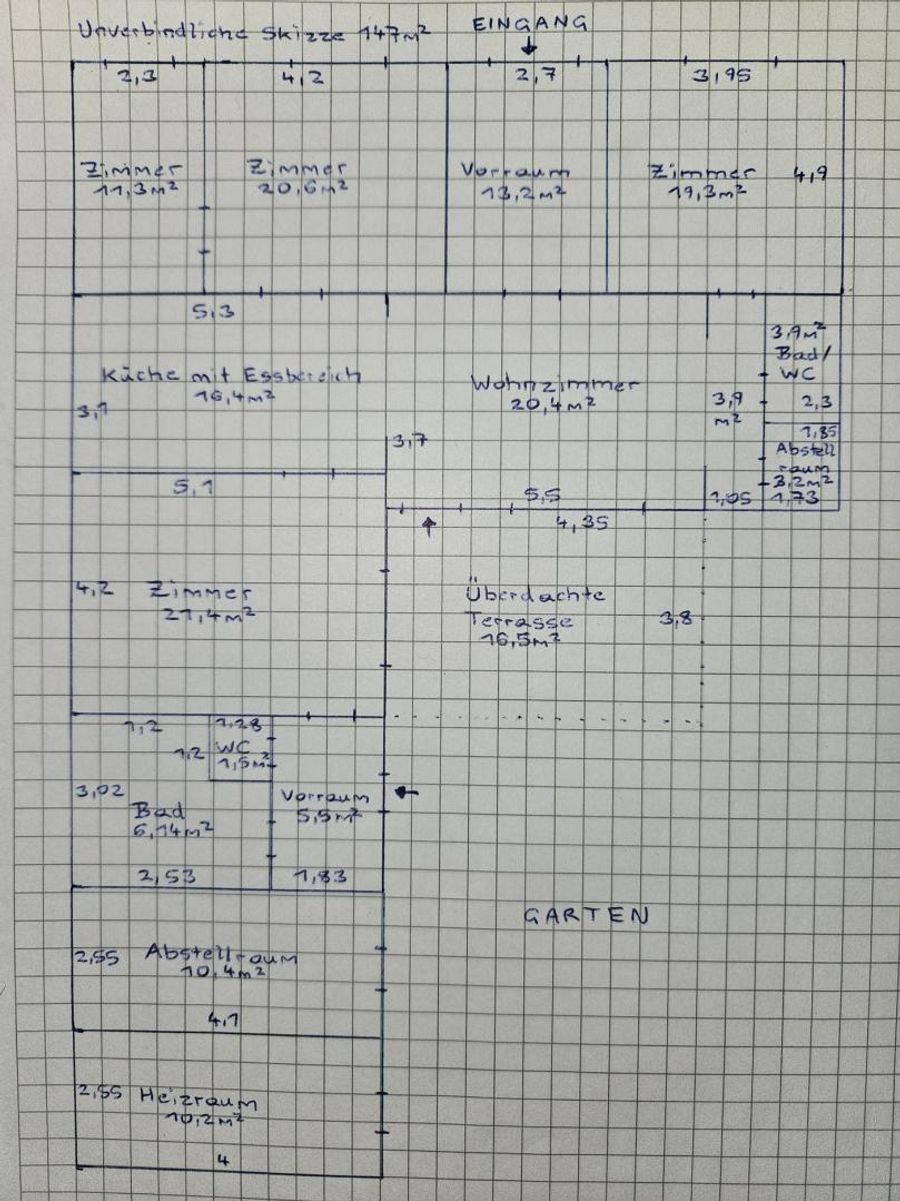 Unverbindliche Skizze 147m²
EINGANG
2,3
4,2
2,7
3,95
Zimmer
11,3m²
Zimmer
20,6m²
Vorraum
13,2m²
Zimmer
19,3m²
4,9
5,3
Küche mit Essbereich
16,4m²
3,1
Wohnzimmer
20,4m²
3,9
m²
3,9m²
Bad/
WC
2,3
1,85
Abstell
raum
3,2m²
1,73
1,05
3,7
5,1
5,5
4,35
4,2
Zimmer
21,4m²
Überdachte
Terrasse
16,5m²
3,8
1,2
1,28
1,2
WC
1,5m²
3,02
Bad
6,14m²
Vorraum
5,5m²
2,53
1,83
GARTEN
2,55
Abstellraum
10,4m²
4,1
2,55
Heizraum
10,2m²
4